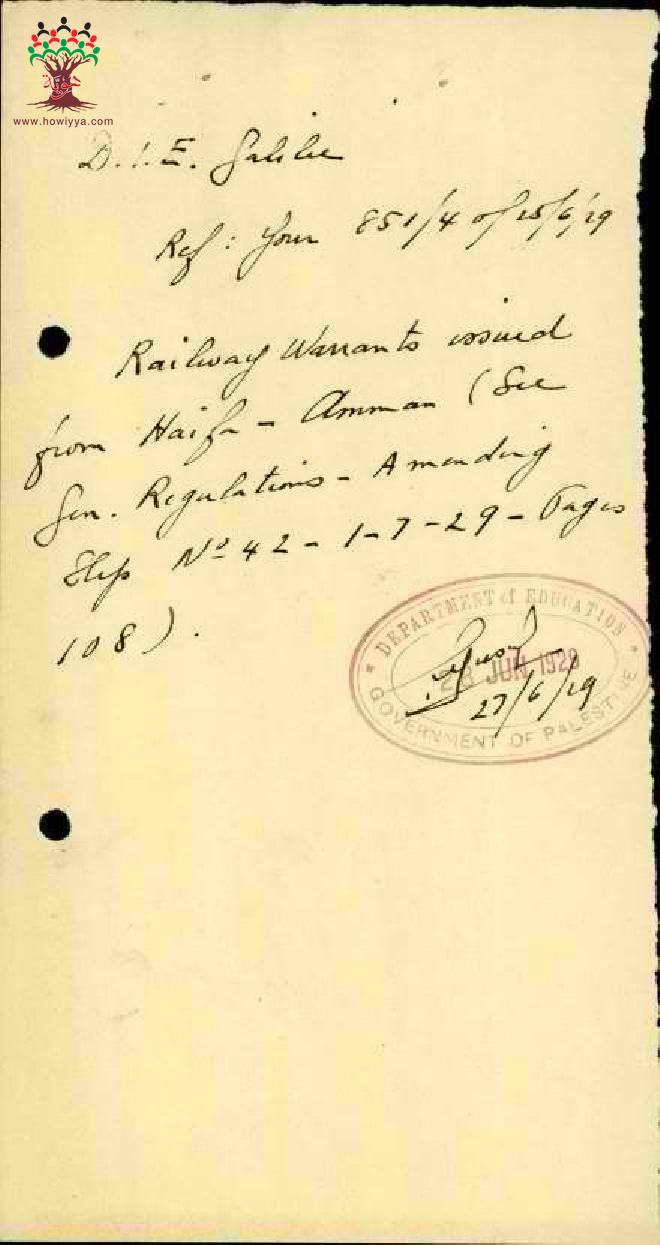 www.howiyya.com
D.I.E. Galilee
Ref: Your 851/4 of 15/6/29
Railway Warrants issued
from Haifa - Amman (See
Gen. Regulations - Amending
Slip Nº 42 - 1-7-29 - Pages
108).
DEPARTMENT of EDUCATION
28 JUN 1929
27/6/29
GOVERNMENT OF PALESTINE